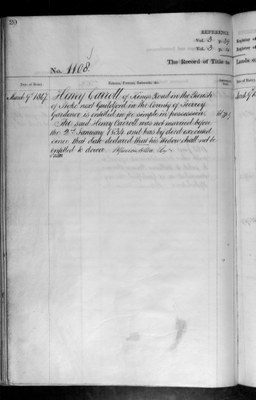 20
REFERENCE
Vol. 3
Vol. 3
The Record of Title to
No. 1108
March 9th 1867
Henry Carroll of Kings Road in the Parish
of Stoke next Guildford in the County of Surrey
Gardener is entitled in fee simple in possession
The said Henry Carroll was not married before
the 2nd January 1834 and has by deed executed
since that date declared that his widow shall not be
entitled to dower